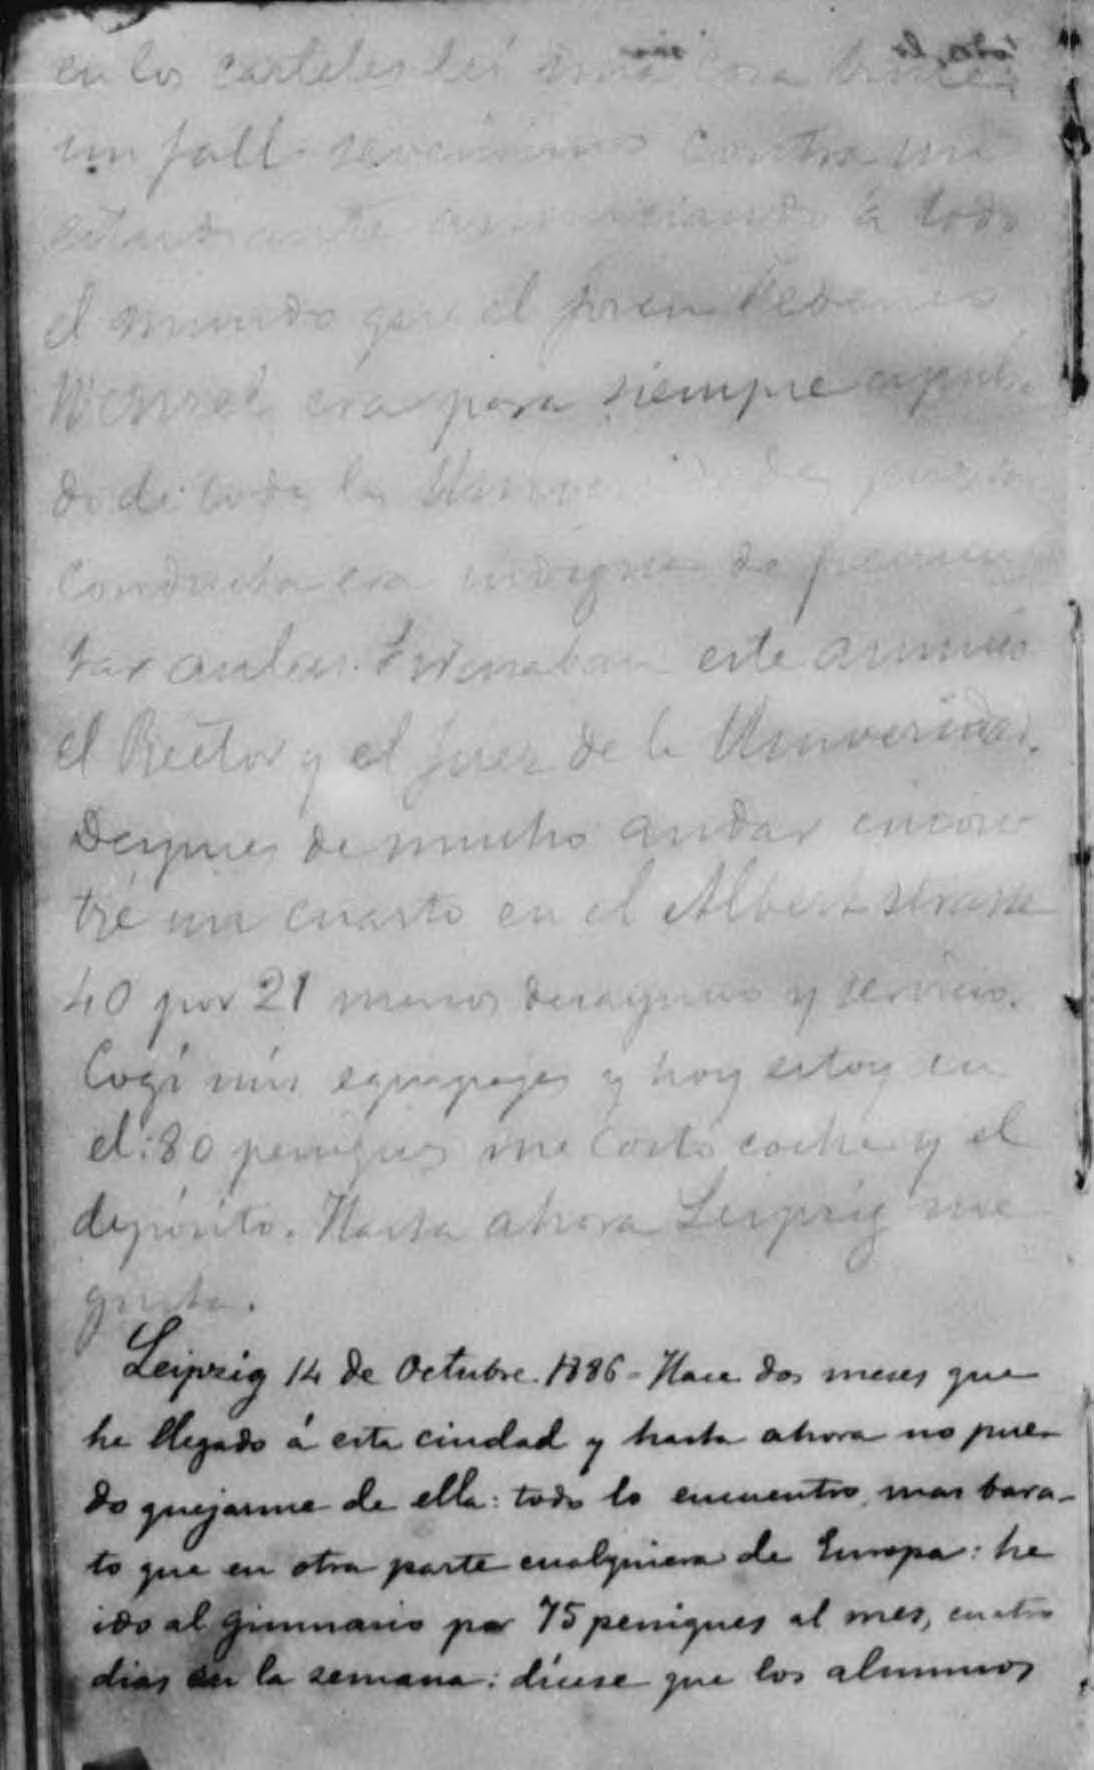 en los carteles leí una cosa
un fall severisimo contra un
estudiante anunciando á todo
el mundo que el joven
Wenzel era para siempre expulsa
do de toda la
conducta era indigna de
tar antes. Firmaban este anuncio
el Rector y el juez de la Universidad.
Despues de mucho andar encon-
tré un cuarto en el Albert strasse
40 por 21 marcos desayuno y servicio.
Cogí mis equipajes y hoy estoy en
el: 80 peniques me costó coche y el
depósito. Hasta ahora Leipzig me
gusta.
Leipzig 14 de Octubre. 1886 - Hace dos meses que
he llegado á esta ciudad y hasta ahora no pue-
do quejarme de ella: todo lo encuentro mas bara-
to que en otra parte cualquiera de Europa: he
ido al gimnasio por 75 peniques al mes, cuatro
dias en la semana: dicese que los alumnos